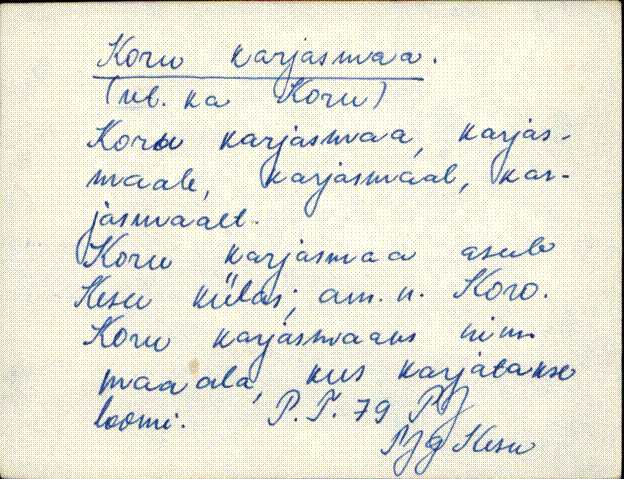 Koru karjasmaa.
(vb. ka Koru)
Koru karjasmaa, karjas-
maale, karjasmaal, kar-
jasmaalt.
Koru karjasmaa asub
Kesu külas; am. n. Koro.
Koru karjasmaaks nim.
maa ala, kus karjatakse
loomi. P. T. 79
Kesu